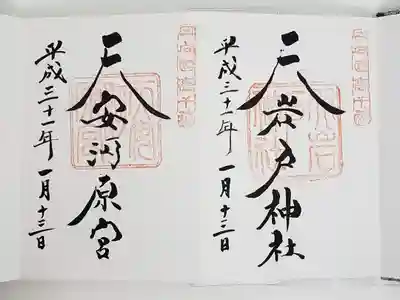 天岩戸神社
平成三十一年一月十三日
天安河原宮
平成三十一年一月十三日